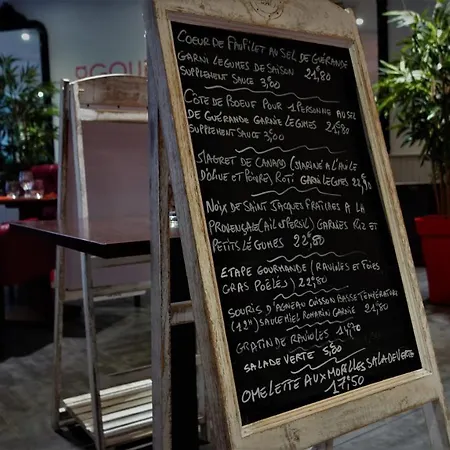 COEUR DE FAUFILET AU SEL DE GUÉRANDE
GARNI LEGUMES DE SAISON 21,80
SUPPLEMENT SAUCE 3,00
CÔTE DE BOEUF POUR 1 PERSONNE AU SEL
DE GUÉRANDE GARNIE LEGUMES 21,80
SUPPLEMENT SAUCE 3,00
MAGRET DE CANARD (MARINÉ A L'HUILE
D'OLIVE ET POIVRE) RÔTI GARNI LEGUMES
NOIX DE SAINT JACQUES FRAICHES A LA
PROVENÇALE (AIL & PERSIL) GARNIES RIZ ET
PETITS LÉGUMES 22,80
ETAPE GOURMANDE (RAVIOLES ET FOIES
GRAS POÊLÉS) 22,80
SOURIS D'AGNEAU CUISSON BASSE TEMPÉRATURE
(12H) SAUCE MIEL ROMARIN GARNIE 21,80
GRATIN DE RAVIOLES
SALADE VERTE 5,80
OMELETTE AUX MORILLES SALADE VERTE
17,50